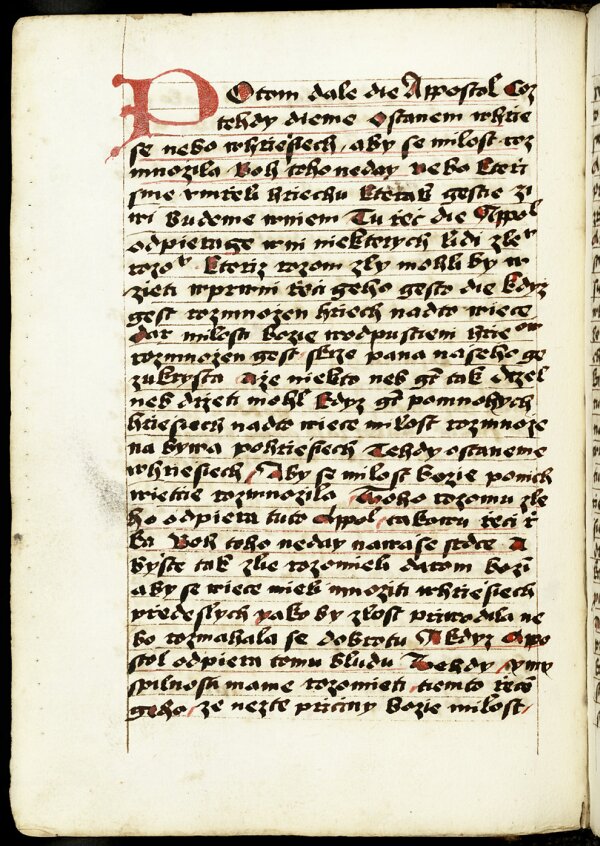 POtom dale die Appostol Coz
tehdy dieme ostanem whrie
se nebo whriesiech, aby se milost roz
mnozila Boh toho neday Nebo kteri
sme umrzeli hriechu kterak gestie zi
wi budeme wniem Tu rec die Appol
odpieragie wni niekterych lidi zle
rozo Kteriz rozom zly mohli by w
zieti wprwni reci geho gesto die kdyz
gest rozmnozen hriech nadto wiece
dar milosti bozie wodpustieni hrie ow
rozmnozen gest skrze pana naseho ge
zukrysta Aze niekto neb gt tak drzel
neb drzeti mohl kdyz gt pomnohych
hriesiech nadto wiece milost rozmnoze
na bywa pohriesiech Tehdy ostaneme
whriesiech Aby se milost bozie ponich
wietsie rozmnozila Toho rozomu zle
ho odpiera tuto Appol, takowu reci r
ka Boh toho neday nawase srdce A
byste tak zlie rozomieli darom bozi
aby se wiece mieli mnoziti whriesiech
predeslych yako by zlost priwodila ne
bo rozmahala se dobrotu A kdyz Appo
stol odpiera tomu bludu Tehdy symy
spilnosti mame rozomieti tiemto recem
geho, ze nezte priciny bozie milost